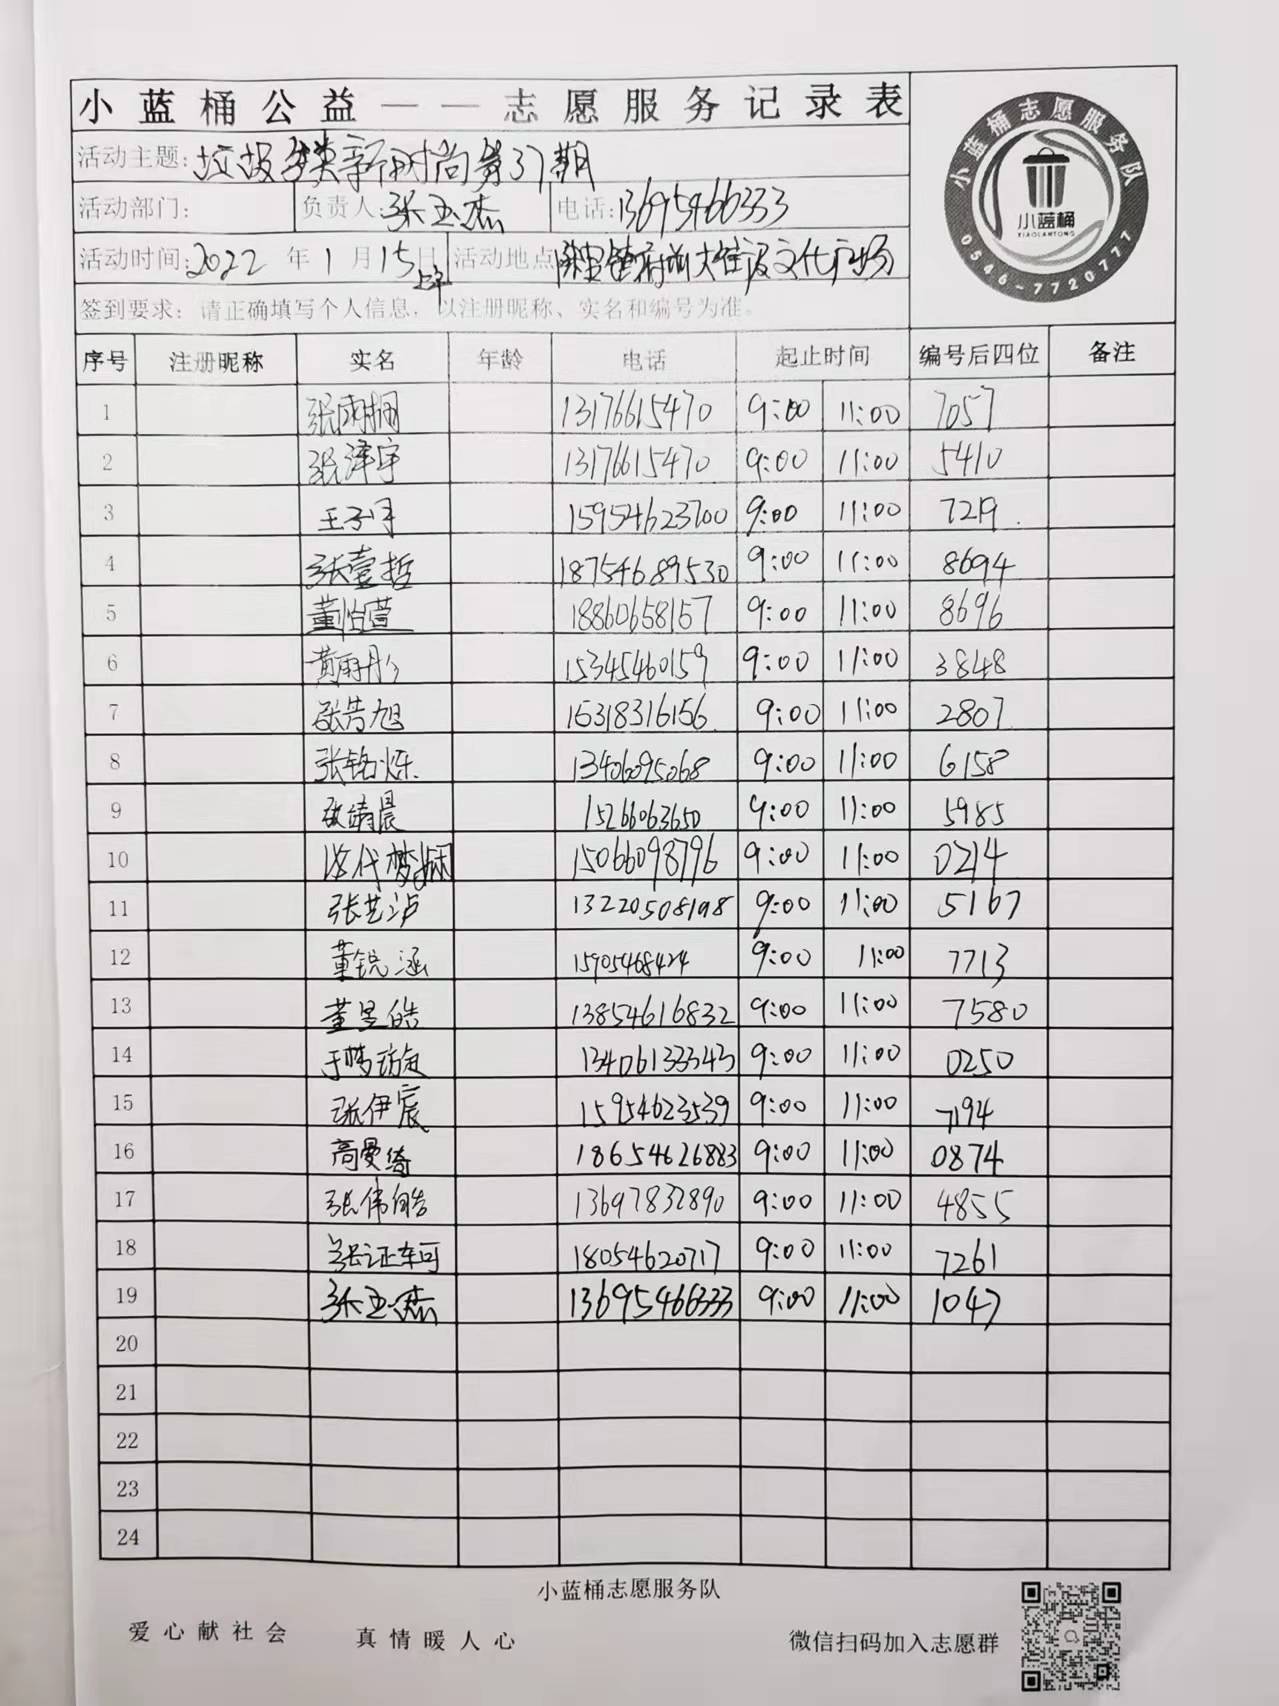 小蓝桶公益——志愿服务记录表
活动主题: 垃圾分类新时尚第37期
活动部门: 负责人: 张玉杰 电话: 13695466333
活动时间: 2022 年 1 月 15 日 上午 活动地点 府前大街及文化广场
签到要求: 请正确填写个人信息, 以注册昵称、实名和编号为准。
小蓝桶志愿服务队
小蓝桶
XIAOLANTONG
0546-7720777
序号 注册昵称 实名 年龄 电话 起止时间 编号后四位 备注
1 张雨桐 13176615470 9:00 11:00 7057
2 张泽宇 13176615470 9:00 11:00 5410
3 王子月 15954623700 9:00 11:00 7219
4 张壹哲 18754689530 9:00 11:00 8694
5 董怡萱 18860658157 9:00 11:00 8696
6 黄雨彤 15345460159 9:00 11:00 3848
7 张浩旭 15318316156 9:00 11:00 2807
8 张铭烁 13406095068 9:00 11:00 6158
9 张靖晨 15266063650 9:00 11:00 5985
10 代梦娴 15066098796 9:00 11:00 0214
11 张艺泸 13220508198 9:00 11:00 5167
12 董锐涵 15905468424 9:00 11:00 7713
13 董昱皓 13854616832 9:00 11:00 7580
14 于梦 13406133343 9:00 11:00 0250
15 张伊宸 15954623539 9:00 11:00 7194
16 高曼绮 18654626883 9:00 11:00 0874
17 张伟皓 13697832890 9:00 11:00 4855
18 张证轲 18054620717 9:00 11:00 7261
19 张玉杰 13695466333 9:00 11:00 1047
20
21
22
23
24
小蓝桶志愿服务队
爱心献社会 真情暖人心 微信扫码加入志愿群